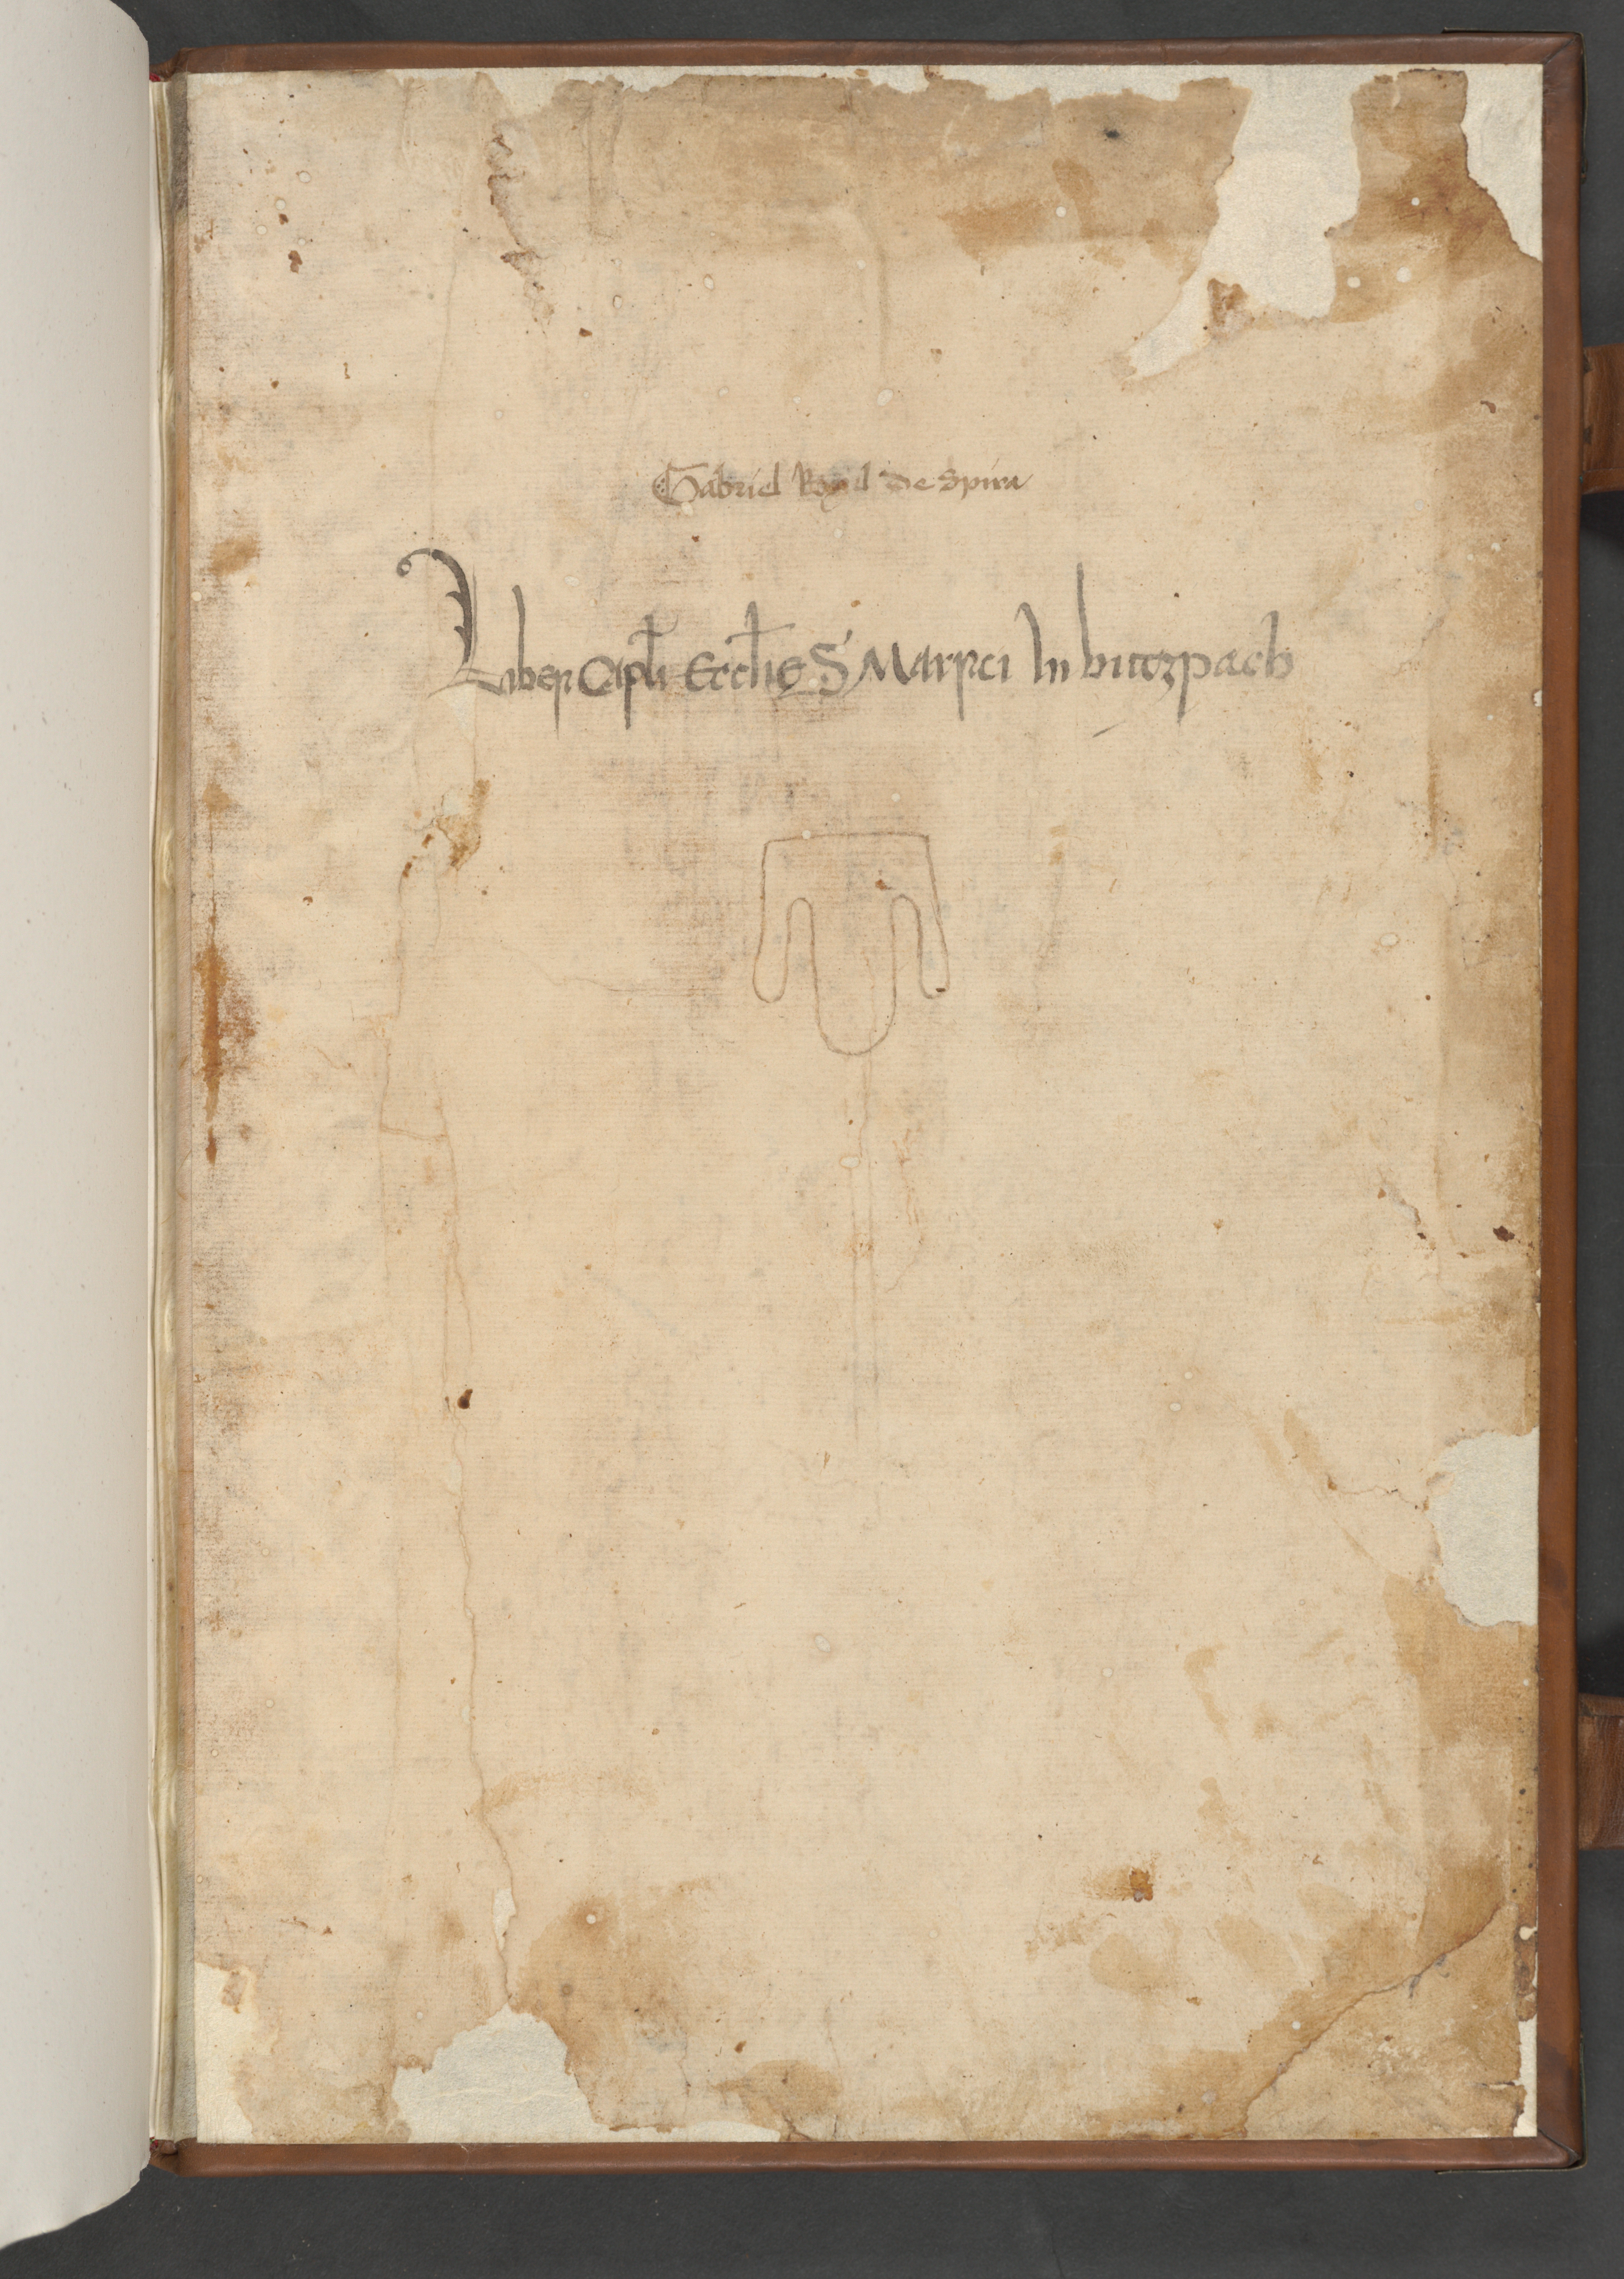 Gabriel de Spira
Liber Capli Ecclie S Marci In butzpach